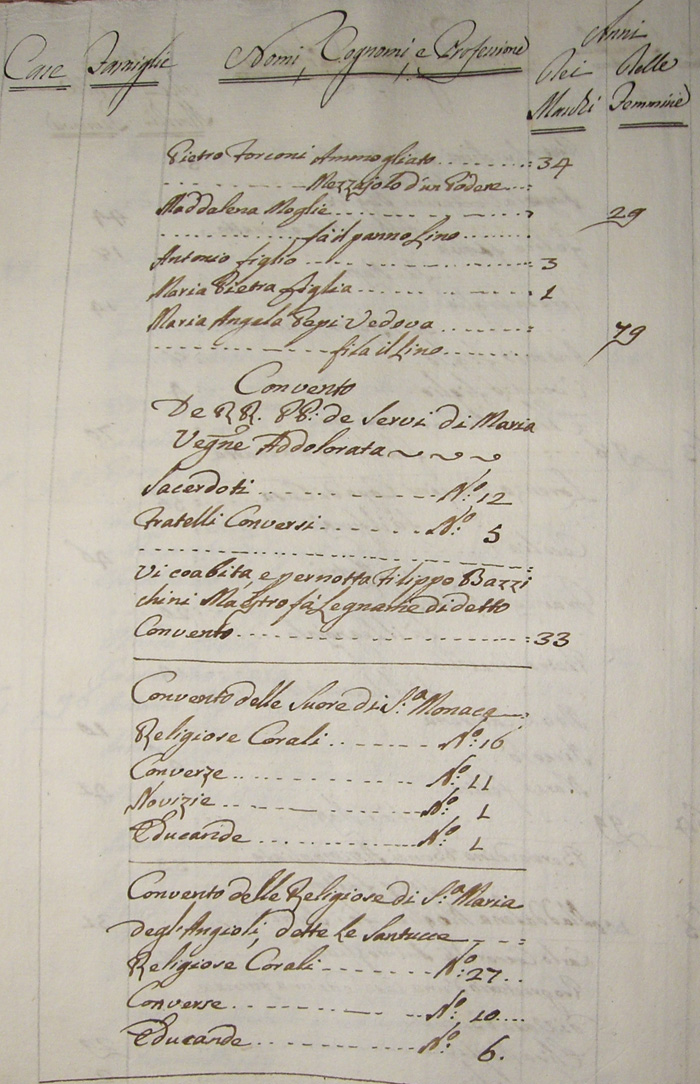 Case Famiglie Nomi, Cognomi, e Professione Anni
Dei Delle
Maschi Femmine
Pietro Forconi Ammogliato 34
Mezzajolo d'un Podere
Maddalena Moglie 29
fà il panno Lino
Antonio figlio 3
Maria Pietra figlia 1
Maria Angela Pepi Vedova 79
fila il Lino
Convento
De RR. PP. de Servi di Maria
Vegñe Addolorata
Sacerdoti N.º 12
Fratelli Conversi N.º 5
Vi coabita, e pernotta Filippo Bazzi
chini Maestro fà Legname di detto
Convento 33
Convento delle Suore di S.ª Monaca
Religiose Corali N.º 16
Converze N.º 11
Novizie N.º 1
Educande N.º 1
Convento delle Religiose di S.ª Maria
degl'Angioli, dette Le Santucce
Religiose Corali N.º 27
Converse N.º 10
Educande N.º 6.